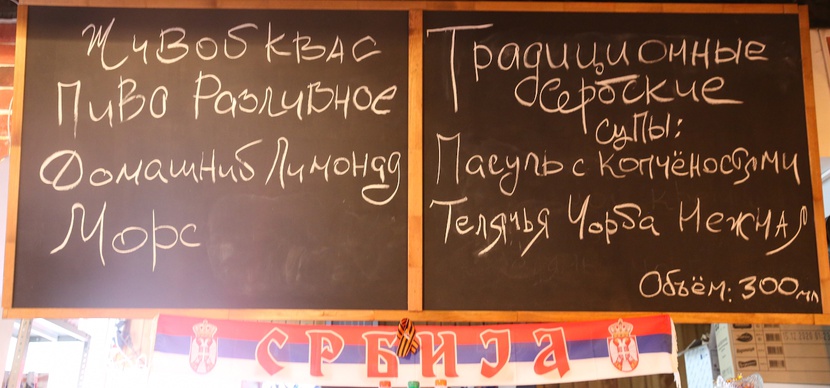 Живой квас
Пиво Разливное
Домашний Лимонад
Морс
Традиционные
сербские
супы:
Пасуль с копчёностями
Телячья Чорба Нежная
Объём: 300 мл
СРБИЈА